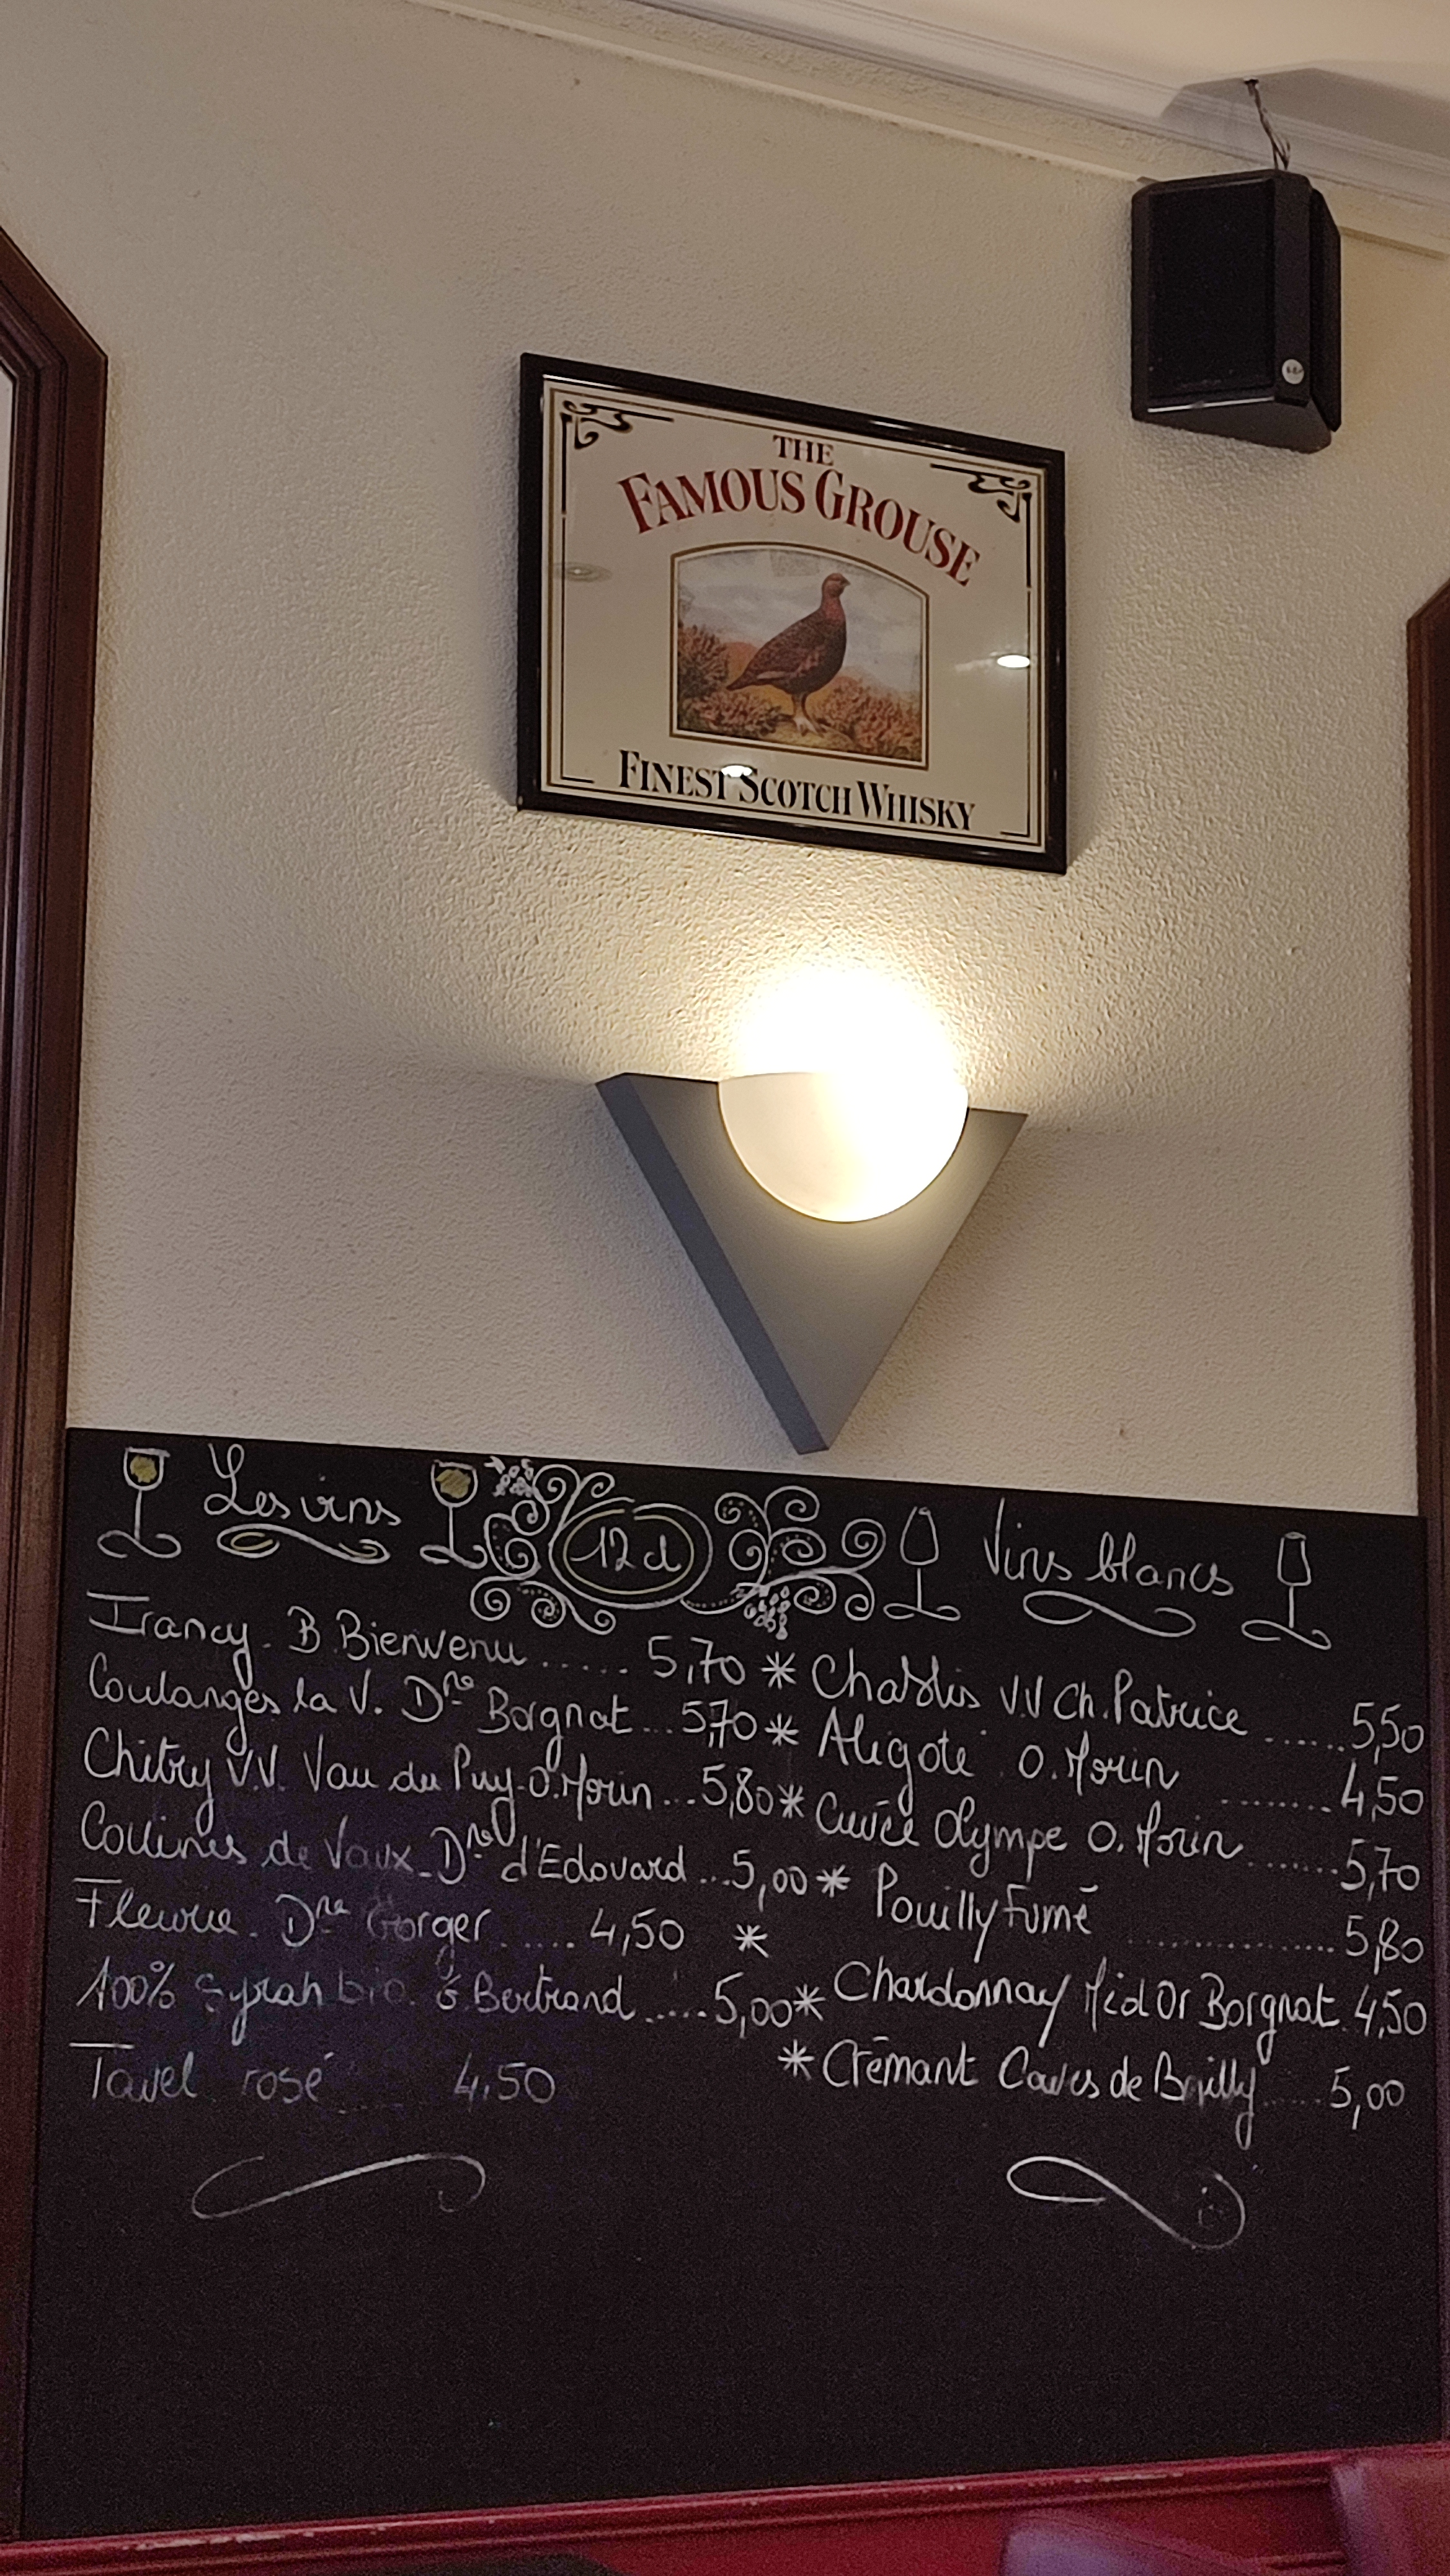 THE
FAMOUS GROUSE
FINEST SCOTCH WHISKY
Les vins
12cl
Vins blancs
Irancy - B. Bienvenu ...... 5,70 *
Coulanges la V. Dne Borgnat ... 5,70 *
Chitry V.V. Vau du Puy - O. Morin ... 5,80 *
Collines de Vaux - Dne d'Edouard ... 5,00 *
Fleurie - Dne Gorger ...... 4,50 *
100% Syrah bio. G. Bertrand ..... 5,00 *
Tavel rosé ..... 4,50
Chablis V.V Ch. Patrice ...... 5,50
Aligoté O. Morin ........ 4,50
Cuvée Olympe O. Morin ....... 5,70
Pouilly Fumé ............... 5,80
Chardonnay Mid Or Borgnat. 4,50
* Crémant Caves de Bailly ..... 5,00